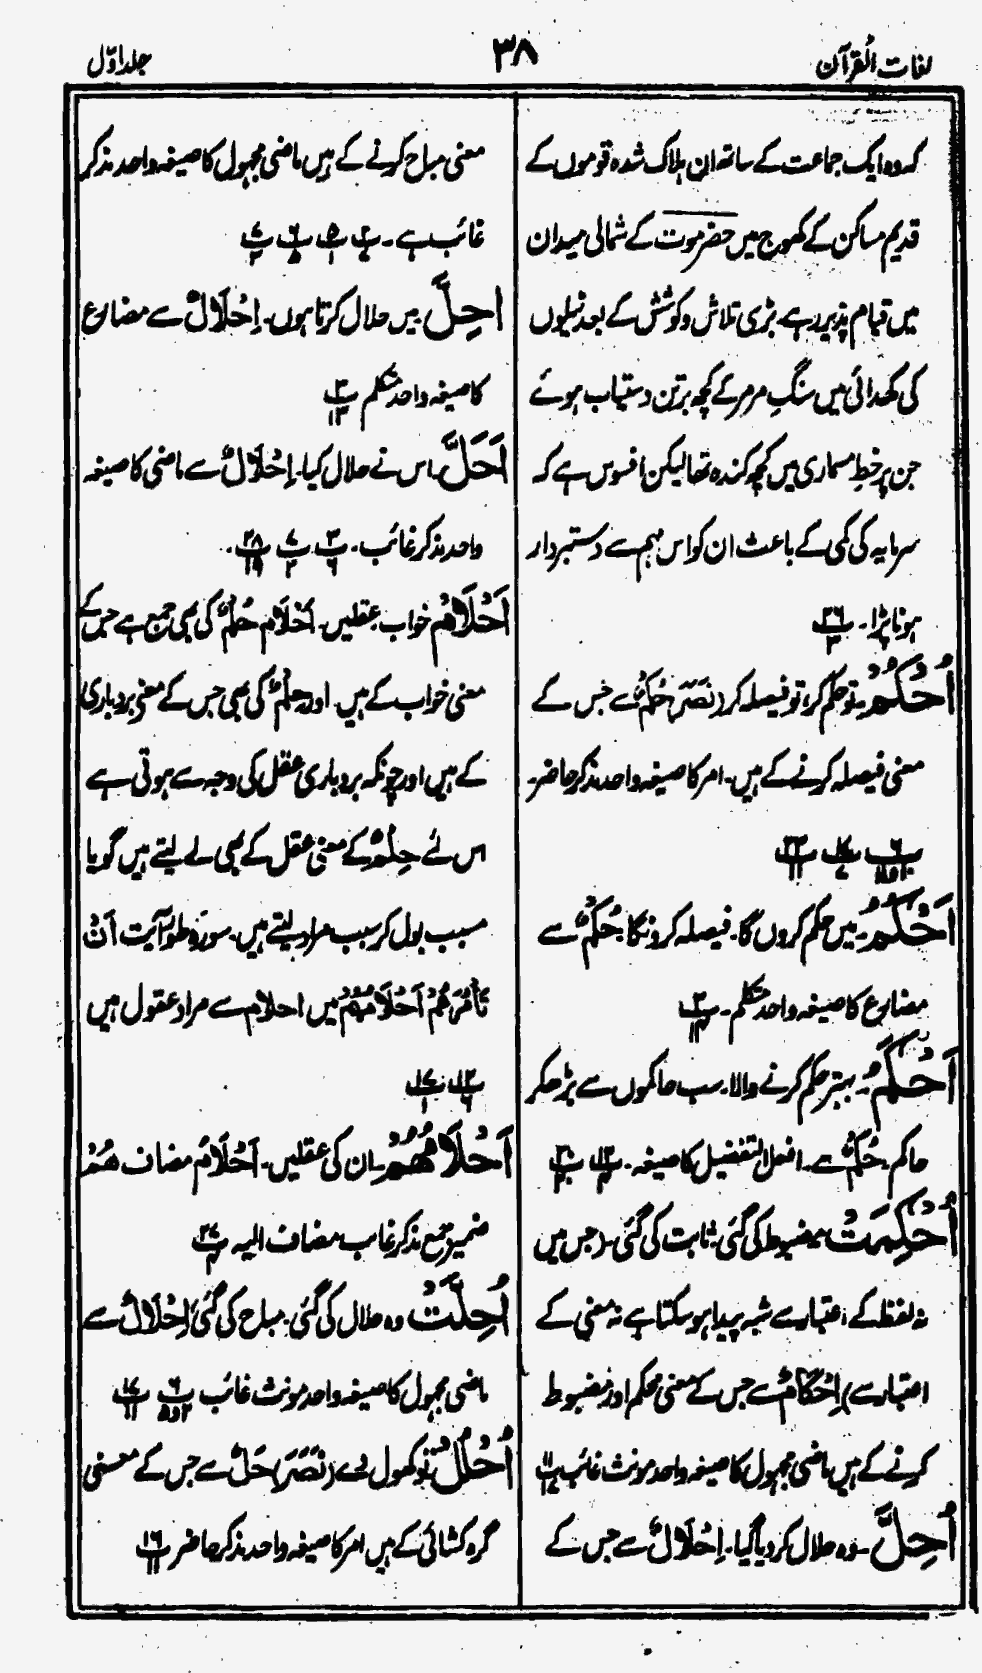 لغات القرآن
۳۸
جلد اوّل
کہ وہ ایک جماعت کے ساتھ ان ہلاک شدہ قوموں کے
قدیم مساکن کے کھوج میں حضرموت کے شمالی میدان
میں قیام پذیر رہے بڑی تلاش و کوشش کے بعد ٹیلوں
کی کھدائی میں سنگِ مرمر کے کچھ برتن دستیاب ہوئے
جن پر خطِ مسماری میں کچھ کندہ تھا لیکن افسوس ہے کہ
سرمایہ کی کمی کے باعث ان کو اس مہم سے دستبردار
ہونا پڑا۔ پ ۲۶
اُحْكُمْ۔ تو حکم کر، تو فیصلہ کر (نَصَرَ) حُکْمٌ سے جس کے
معنی فیصلہ کرنے کے ہیں۔ امر کا صیغہ واحد مذکر حاضر۔
اَحْكُمُ۔ میں حکم کروں گا۔ فیصلہ کرونگا۔ حُکْمٌ سے
مضارع کا صیغہ واحد متکلم۔
اَحْكَمُ۔ بہتر حکم کرنے والا۔ سب حاکموں سے بڑھکر
حاکم۔ حُکْمٌ سے۔ افعل التفضیل کا صیغہ۔
اُحْكِمَتْ۔ مضبوط کی گئی۔ ثابت کی گئی۔ (جس میں
نہ لفظ کے اعتبار سے شبہ پیدا ہو سکتا ہے نہ معنی کے
اعتبار سے) اِحْکَامٌ سے جس کے معنی محکم اور مضبوط
کرنے کے ہیں ماضی مجہول کا صیغہ واحد مونث غائب
اُحِلَّ۔ وہ حلال کر دیا گیا۔ اِحْلَالٌ سے جس کے
معنی مباح کرنے کے ہیں ماضی مجہول کا صیغہ واحد مذکر
غائب ہے۔
اُحِلَّ۔ میں حلال کرتا ہوں۔ اِحْلَالٌ سے مضارع
کا صیغہ واحد متکلم
اَحَلَّ۔ اس نے حلال کیا۔ اِحْلَالٌ سے ماضی کا صیغہ
واحد مذکر غائب۔
اَحْلَامُ خواب۔ عقلیں۔ اَحْلَام حُلْمٌ کی بھی جمع ہے جس کے
معنی خواب کے ہیں۔ اور حِلْمٌ کی بھی جس کے معنی بردباری
کے ہیں اور چونکہ بردباری عقل کی وجہ سے ہوتی ہے
اس لئے حِلْمٌ کے معنی عقل کے بھی لے لیتے ہیں گویا
مسبب بول کر سبب مراد لیتے ہیں۔ سورہ طور آیت اَنْ
تَأْمُرُهُمْ اَحْلَامُهُمْ میں احلام سے مراد عقول ہیں
اَحْلَامُهُمْ۔ ان کی عقلیں۔ اَحْلَامُ مضاف هُمْ
ضمیر جمع مذکر غایب۔ مضاف الیہ
اُحِلَّتْ وہ حلال کی گئی۔ مباح کی گئی، اِحْلَالٌ سے
ماضی مجہول کا صیغہ واحد مونث غائب
اُحْلُلْ تو کھول دے (نَصَرَ) حَلٌّ سے جس کے معنی
گرہ کشائی کے ہیں امر کا صیغہ واحد مذکر حاضر